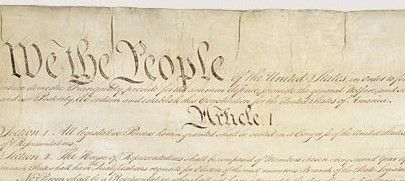 We the People of the United States, in Order to fo
insure domestic Tranquility, provide for the common defence, promote the general Welfare, and se
and our Posterity, do ordain and establish this Constitution for the United States of America.
Article I
Section 1. All legislative Powers herein granted shall be vested in a Congress of the United States
of Representatives.
Section 2. The House of Representatives shall be composed of Members chosen every second Year
in each State shall have Qualifications requisite for Electors of the most numerous Branch of the State Legislature
No Person shall be a Representative who shall